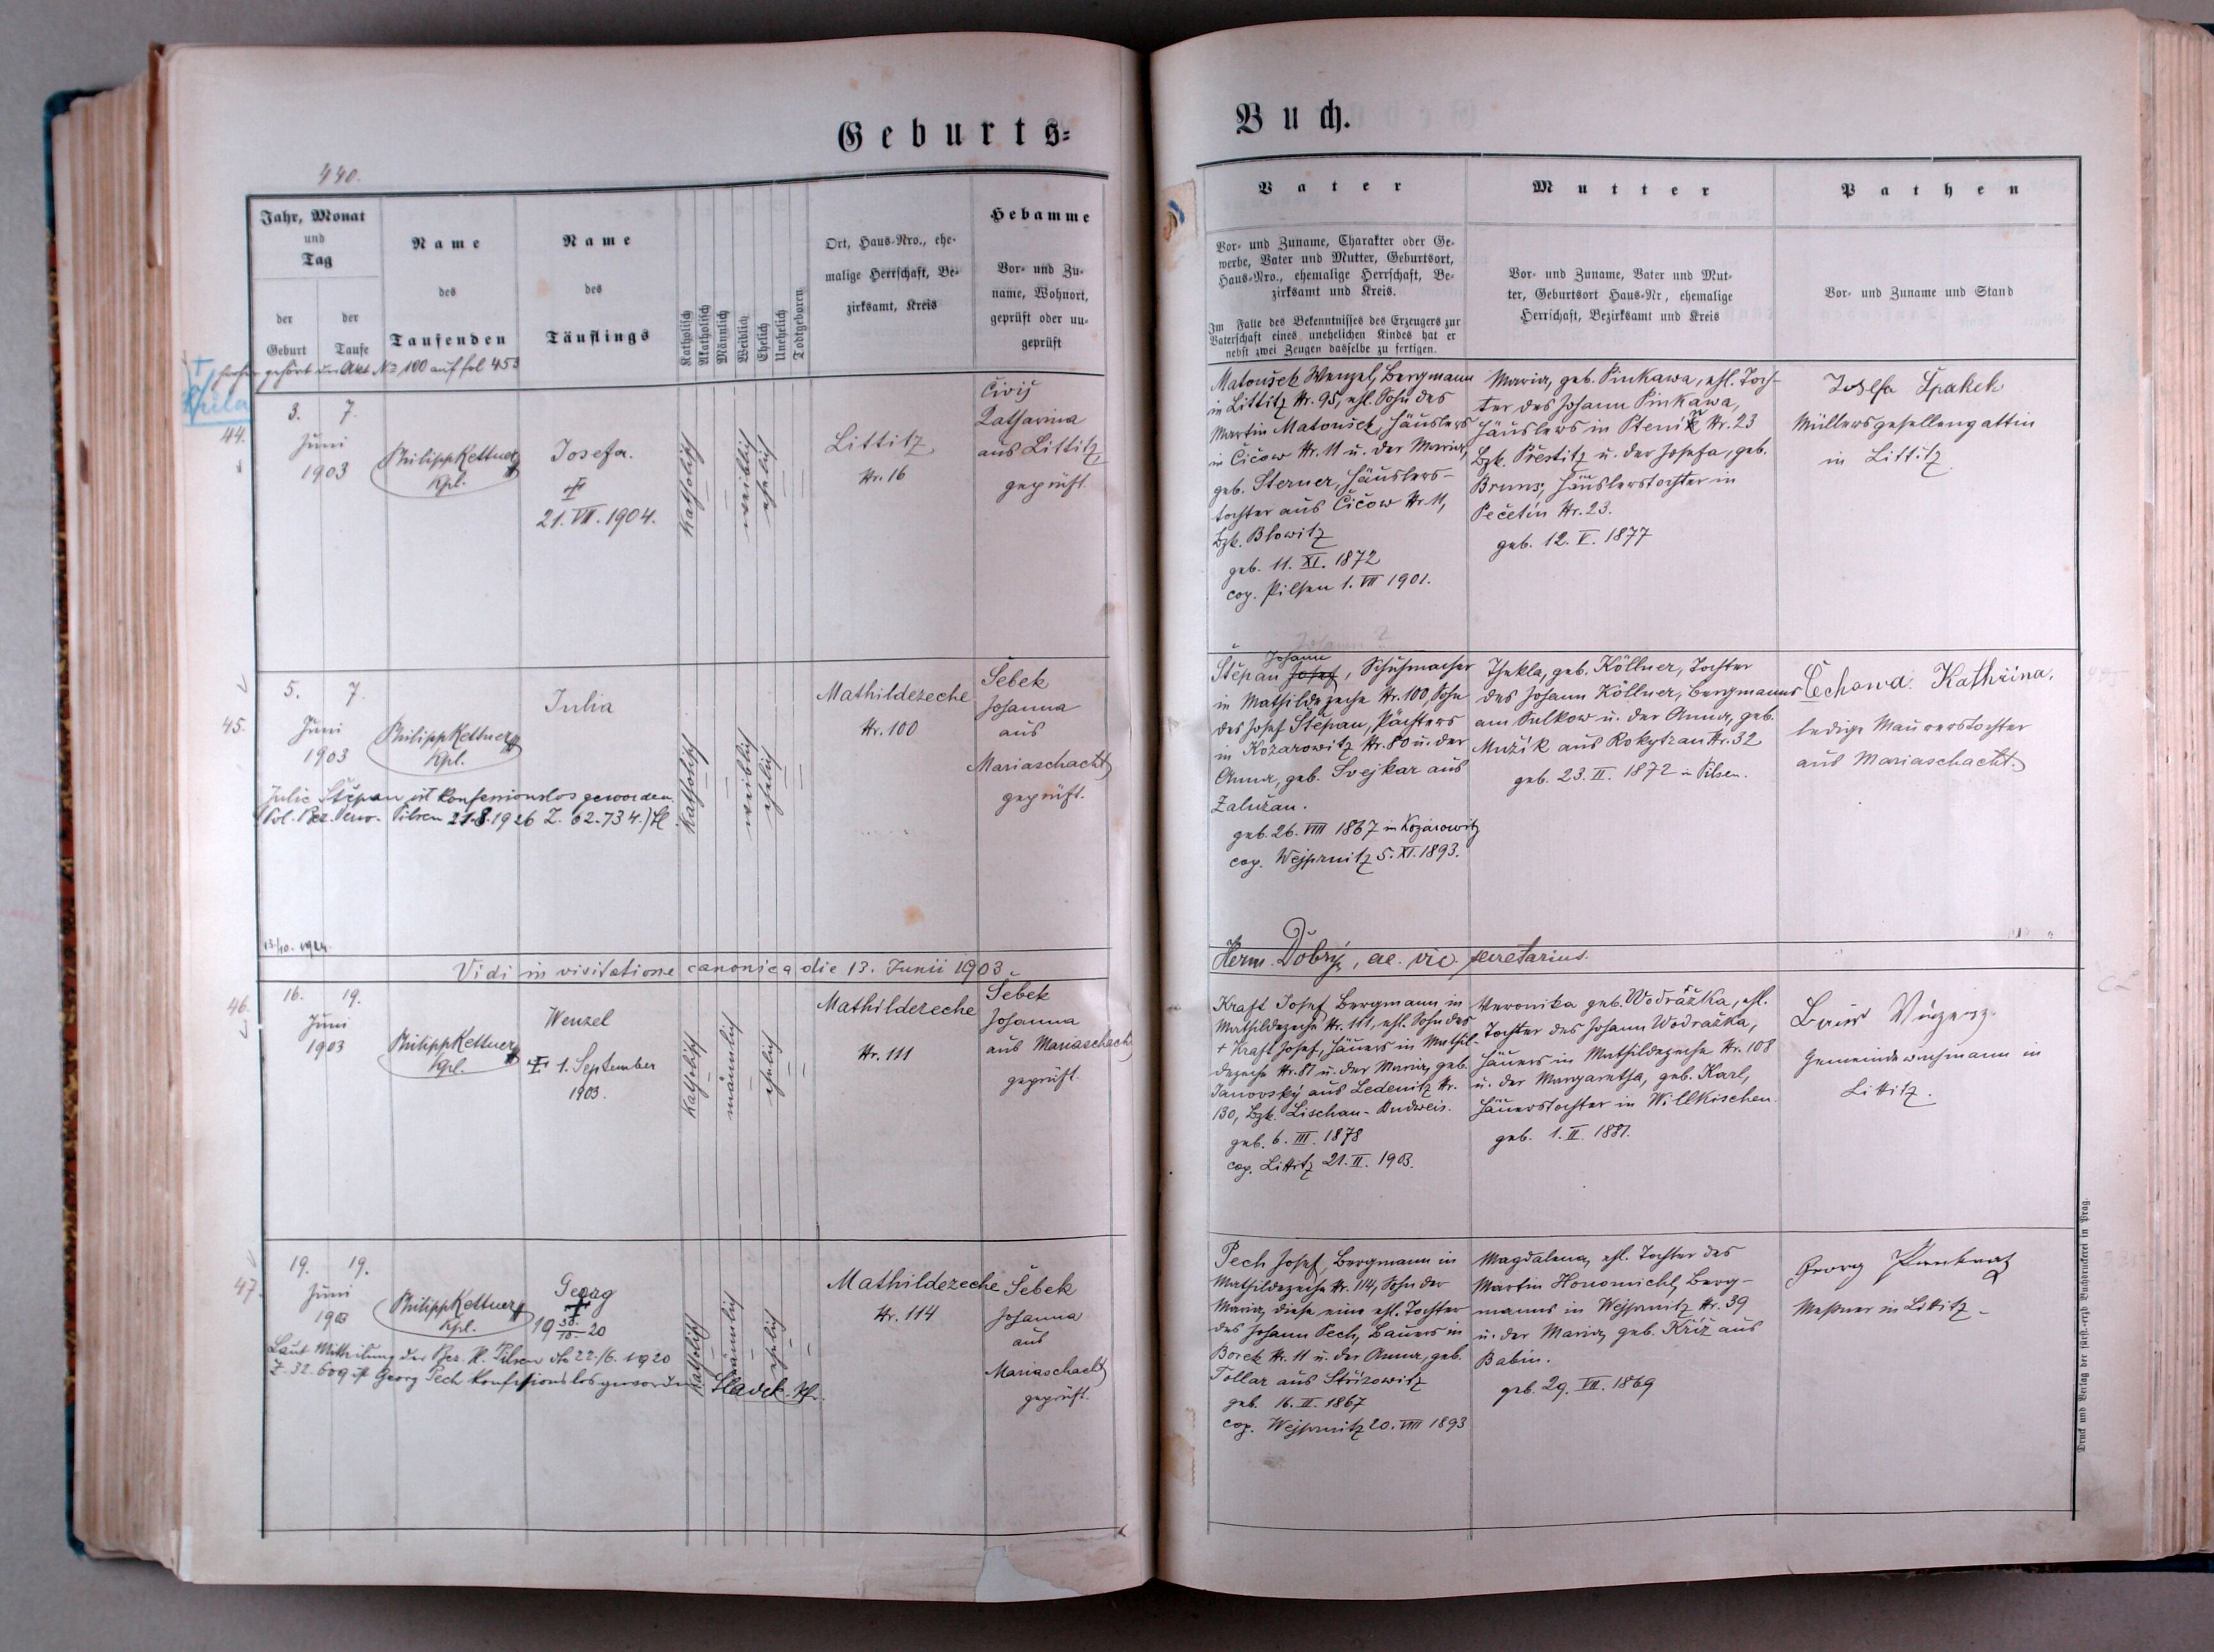 Geburts=
Buch.
440.
Jahr, Monat
und
Tag
der
Geburt
der
Taufe
Name
des
Taufenden
Name
des
Täuflings
Katholisch
Akatholisch
Männlich
Weiblich
Ehelich
Unehelich
Todtgeboren
Ort, Haus-Nro., ehe-
malige Herrschaft, Be-
zirksamt, Kreis
Hebamme
Vor- und Zu-
name, Wohnort,
geprüft oder un-
geprüft
Vater
Vor- und Zuname, Charakter oder Ge-
werbe, Vater und Mutter, Geburtsort,
Haus-Nro., ehemalige Herrschaft, Be-
zirksamt und Kreis.
Im Falle des Bekenntnisses des Erzeugers zur
Vaterschaft eines unehelichen Kindes hat er
nebst zwei Zeugen dasselbe zu fertigen.
Mutter
Vor- und Zuname, Vater und Mut-
ter, Geburtsort Haus-Nr, ehemalige
Herrschaft, Bezirksamt und Kreis
Pathen
Vor- und Zuname und Stand
gehört der Akt No 100 auf fol 453
44.
3. 7.
Juni
1903
Philipp Kettner
Kpl.
Josefa.
21. VII. 1904.
katholisch
weiblich
ehelich
Littitz
Nr. 16
Čivis
Katharina
aus Littitz,
geprüft.
Matoušek Wenzel, Bergmann
in Littitz Nr. 95, ehl. Sohn des
Martin Matoušek, Häuslers
in Čičow Nr. 11 u. der Maria,
geb. Sterner, Häuslers-
tochter aus Čičow Nr. 11,
Bzk. Blowitz
geb. 11. XI. 1872
cop. Pilsen 1. VII 1901.
Maria, geb. Pinkawa, ehl. Toch-
ter des Johann Pinkawa,
Häuslers in Ptenin Nr. 23
Bzk. Přestitz u. der Josefa, geb.
Bruns, Häuslerstochter in
Pečetín Nr. 23.
geb. 12. V. 1877
Josefa Špakek
Müllersgesellengattin
in Littitz.
45.
5. 7.
Juni
1903
Philipp Kettner
Kpl.
Julia
Julie Štěpan ist konfessionslos geworden.
(Pol. Bez. Verw. Pilsen 21.8.1926 Z. 62.734.)
13./10. 1924.
katholisch
weiblich
ehelich
Mathildezeche
Nr. 100
Šebek
Johanna
aus
Mariaschacht
geprüft.
Johann
Štěpan Josef, Schuhmacher
in Mathildezeche Nr. 100, Sohn
des Josef Štěpan, Pächters
in Kozarowitz Nr. 80 u. der
Anna, geb. Svejkar aus
Zalužan.
geb. 26. VIII 1867 in Kozarowitz
cop. Wejprnitz 5. XI. 1893.
Thekla, geb. Köllner, Tochter
des Johann Köllner, Bergmanns
am Sulkow u. der Anna, geb.
Mužík aus Rokytzan Nr. 32
geb. 23. II. 1872 in Pilsen.
Čechowa Kathrina,
ledige Maurerstochter
aus Mariaschacht.
Vidi in visitatione canonica die 13. Junii 1903.
Herm. Dobrý, ae. vic. secretarius.
46.
16. 19.
Juni
1903
Philipp Kettner
Kpl.
Wenzel
1. September
1903.
katholisch
männlich
ehelich
Mathildezeche
Nr. 111
Šebek
Johanna
aus Mariaschacht
geprüft.
Kraft Josef, Bergmann in
Mathildezeche Nr. 111, ehl. Sohn des
+ Kraft Josef, Häuers in Mathil-
dezeche Nr. 87 u. der Maria, geb.
Janovský aus Ledenitz Nr.
130, Bzk. Lischau - Budweis.
geb. 6. III. 1878
cop. Littitz 21. II. 1903.
Veronika geb. Wodražka, ehl.
Tochter des Johann Wodražka,
Häuers in Mathildezeche Nr. 108
u. der Margaretha, geb. Karl,
Häuerstochter in Willkischen.
geb. 1. II. 1881.
Gemeindewachmann in
Littitz.
47.
19. 19.
Juni
1903
Philipp Kettner
Kpl.
Georg
Laut Mitteilung der Bez. H. Pilsen dto 22./6. 1920
Z. 32.609 ist Georg Pech konfessionslos geworden
Slavek. Pfr.
katholisch
männlich
ehelich
Mathildezeche
Nr. 114
Šebek
Johanna
aus
Mariaschacht
geprüft.
Pech Josef, Bergmann in
Mathildezeche Nr. 114, Sohn der
Maria, diese eine ehl. Tochter
des Johann Pech, Bauers in
Borek Nr. 11 u. der Anna, geb.
Tollar aus Střizowitz
geb. 16. II. 1867
cop. Wejprnitz 20. VIII 1893
Magdalena, ehl. Tochter des
Martin Honomichl, Berg-
manns in Wejprnitz Nr. 39
u. der Maria, geb. Kříž aus
Babin.
geb. 29. VII. 1869
Georg Pankratz
Meßner in Littitz
Druck und Verlag der fürst-erzb Buchdruckerei in Prag.